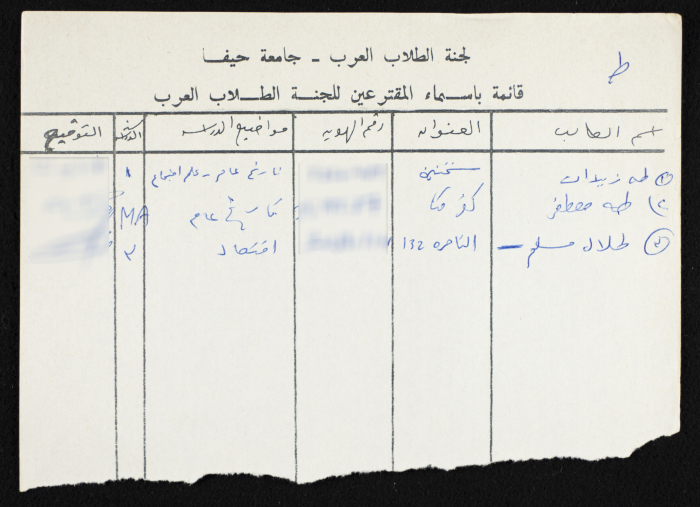 لجنة الطلاب العرب - جامعة حيفا
ط
قائمة باسماء المقترعين للجنة الطلاب العرب
اسم الطالب العنوان رقم الهوية مواضيع الدراسه التوقيع
١) طه زيدات سخنين تاريخ عام - علم اجتماع ١
٢) طه مصطفى كفر كنا تاريخ عام MA
٣) طلال مسلم - الناصره 132 اقتصاد ٣